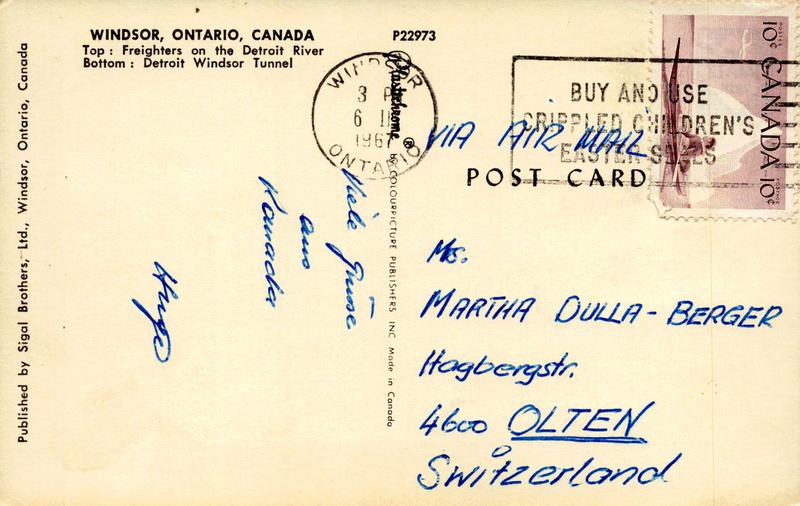 WINDSOR, ONTARIO, CANADA P22973
Top : Freighters on the Detroit River
Bottom : Detroit Windsor Tunnel
Published by Sigal Brothers, Ltd., Windsor, Ontario, Canada
WINDSOR
3 P
6 III
1967
ONTARIO
Plastichrome ® by COLOURPICTURE PUBLISHERS INC Made in Canada
BUY AND USE
CRIPPLED CHILDREN'S
EASTER SEALS
10¢ CANADA 10¢
POSTES POSTAGE
VIA AIR MAIL
POST CARD
Viele Grüsse
aus
Kanada
Hugo
Ms.
MARTHA DULLA-BERGER
Hagbergstr.
4600 OLTEN
Switzerland